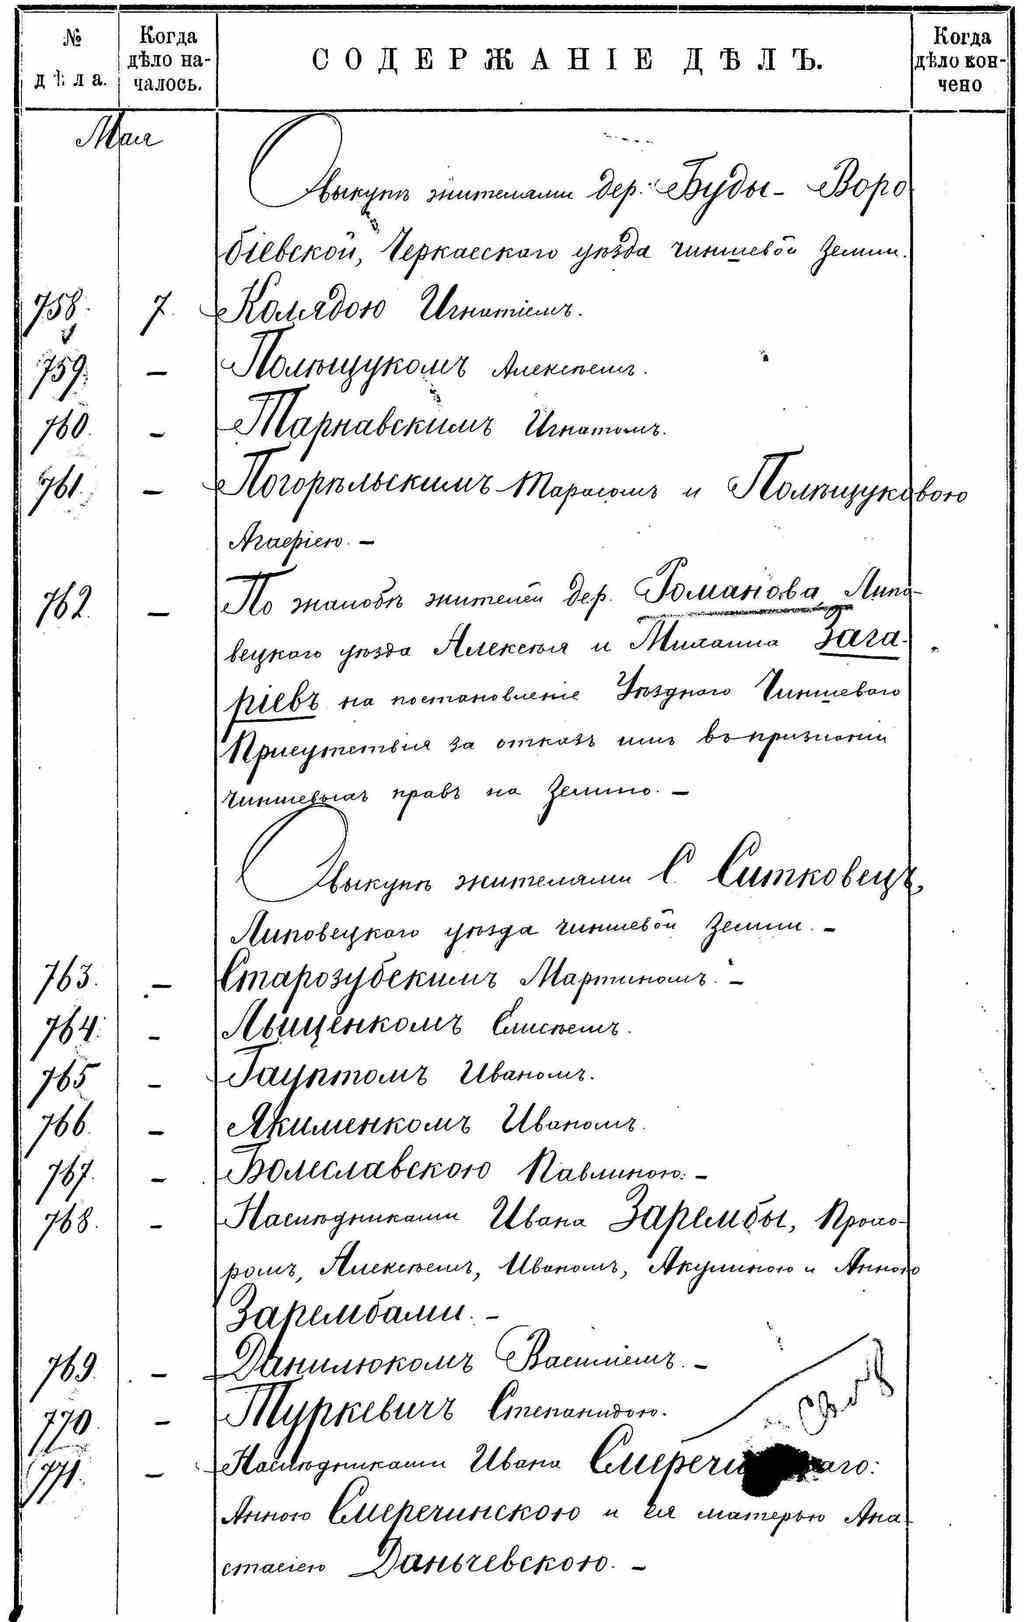 № дѣла.
Когда дѣло началось.
СОДЕРЖАНІЕ ДѢЛЪ.
Когда дѣло кончено
Мая
О выкупѣ жителями дер. Буды-Воро
біевской, Черкасскаго уѣзда чиншевой земли.
758. 7. Колядою Игнатіемъ.
759. — Полѣщукомъ Алексѣемъ.
760. — Тарнавскимъ Игнатомъ.
761. — Погорѣльскимъ Тарасомъ и Полѣщуковою
Агафіею. —
762. — По жалобѣ жителей дер. Романова, Липо-
вецкаго уѣзда Алексѣя и Михаила Зага-
ріевъ на постановленіе Уѣзднаго Чиншеваго
Присутствія за отказъ имъ въ признаніи
чиншевыхъ правъ на землю. —
О выкупѣ жителями С. Ситковецъ,
Липовецкаго уѣзда чиншевой земли. —
763. — Старозубскимъ Мартиномъ. —
764. — Лыщенкомъ Елисѣемъ.
765 — Гауптомъ Иваномъ.
766. — Якименкомъ Иваномъ.
767. — Болеславскою Павлиною. —
768. — Наслѣдниками Ивана Зарембы, Прохо-
ромъ, Алексѣемъ, Иваномъ, Акулиною и Анною
Зарембами. —
769. — Данилюкомъ Василіемъ. —
770. — Туркевичъ Степанидою.
771. — Наслѣдниками Ивана Смеречинскаго:
Анною Смеречинскою и ея матерью Ана
стасіею Даньчевскою. —